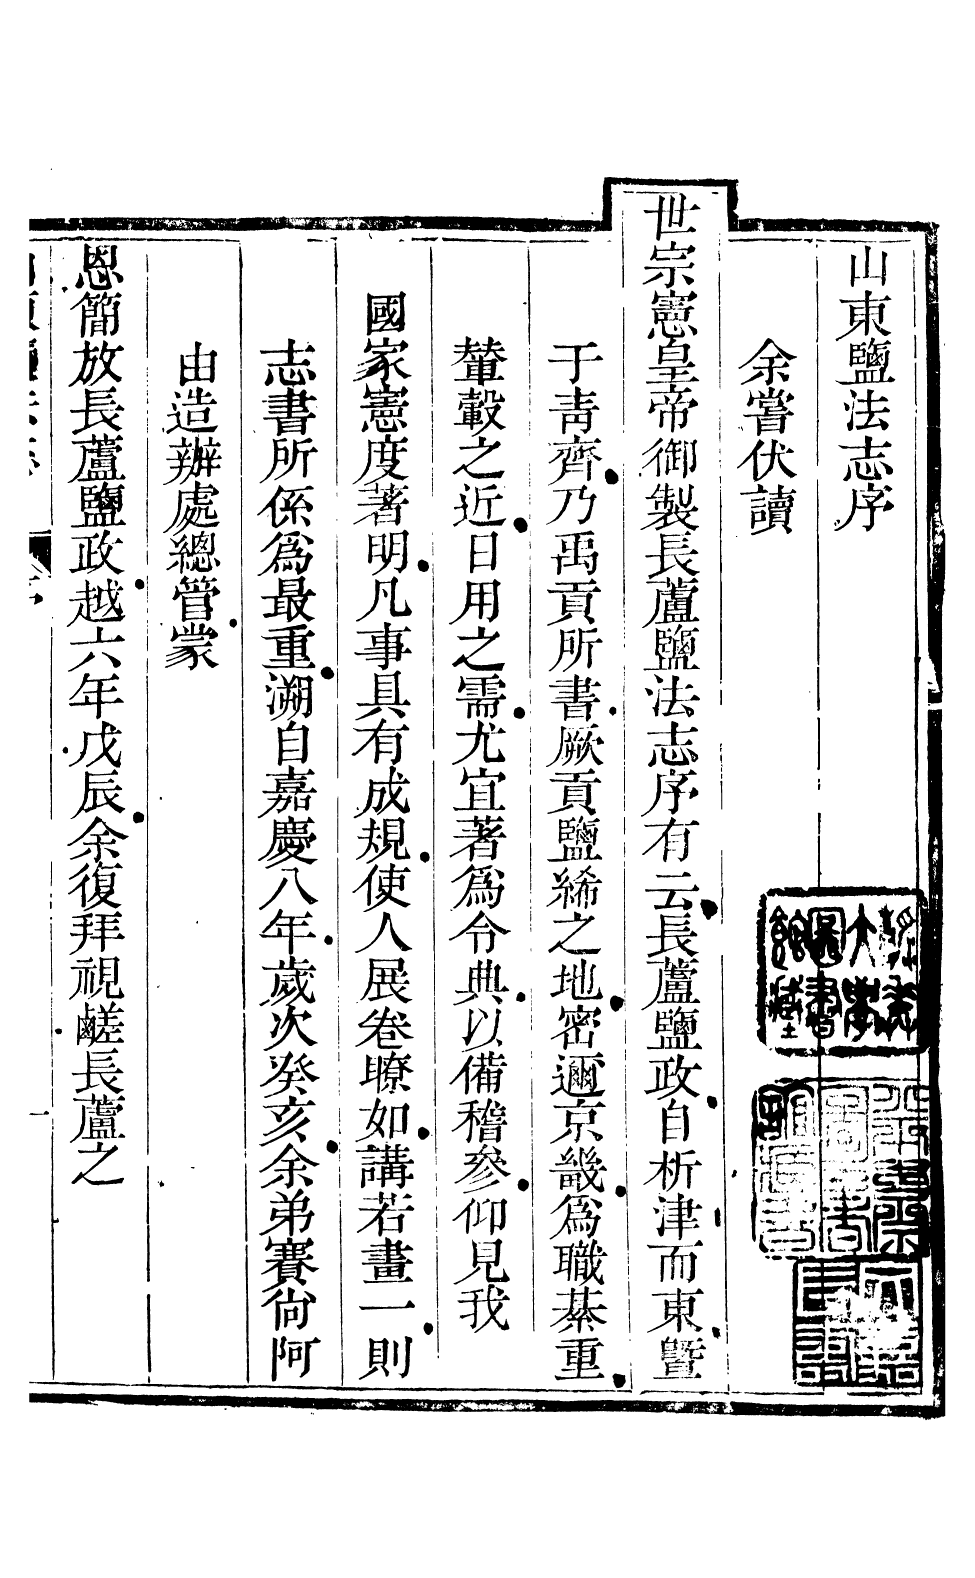 山東鹽法志序
余嘗伏讀
世宗憲皇帝御製長蘆鹽法志序有云長蘆鹽政自析津而東曁
于靑齊乃禹貢所書厥貢鹽絺之地密邇京畿爲職綦重
輦轂之近日用之需尤宜著爲令典以備稽參仰見我
國家憲度著明凡事具有成規使人展卷瞭如講若畫一則
志書所係爲最重溯自嘉慶八年歲次癸亥余弟賽尙阿
由造辦處總管蒙
恩簡放長蘆鹽政越六年戊辰余復拜視鹺長蘆之
一